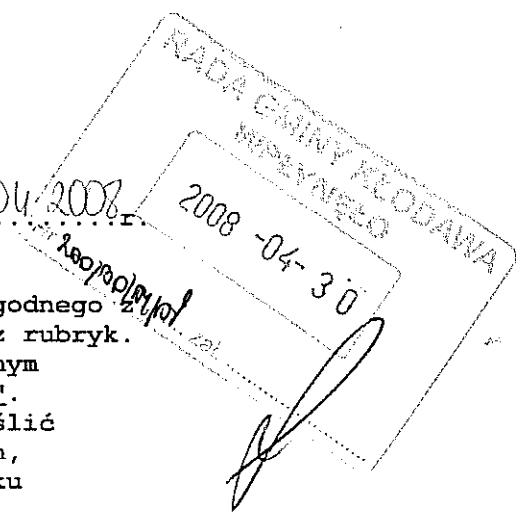 RADA GMINY KŁODAWA
WPŁYNĘŁO
2008 -04- 30
zał.
04.2008 r.
godnego z
z rubryk.
nym
".
ślić
h,
ku